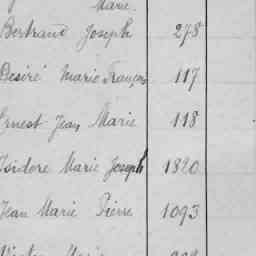 Marie.
Bertrand Joseph 278
Désiré Marie François 117
Ernest Jean Marie 118
Isidore Marie Joseph 1820
Jean Marie Pierre 1093
Marie